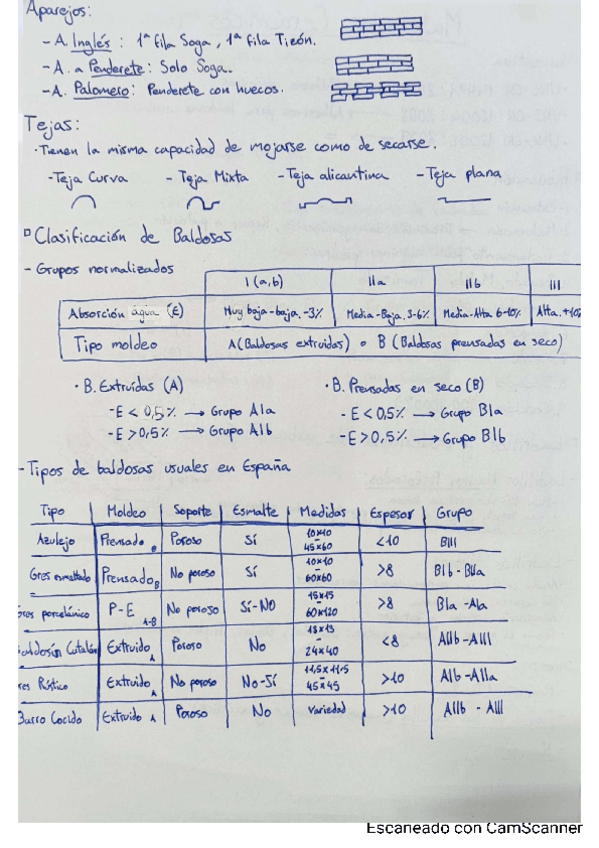 Aparejos:
- A. Inglés: 1ª fila Soga, 1ª fila Tizón.
- A. a Penderete: Solo Soga.
- A. Palomero: Penderete con huecos.
Tejas:
· Tienen la misma capacidad de mojarse como de secarse.
- Teja Curva - Teja Mixta - Teja alicantina - Teja plana
Clasificación de Baldosas
- Grupos normalizados
I (a,b) IIa IIb III
Absorción agua (E) Muy baja-baja, -3% Media-Baja, 3-6% Media-Alta 6-10% Alta, +10%
Tipo moldeo A (Baldosas extruidas) o B (Baldosas prensadas en seco)
· B. Extruídas (A) · B. Prensadas en seco (B)
- E < 0,5% → Grupo AIa - E < 0,5% → Grupo BIa
- E > 0,5% → Grupo AIb - E > 0,5% → Grupo BIb
- Tipos de baldosas usuales en España
Tipo Moldeo Soporte Esmalte Medidas Espesor Grupo
Azulejo Prensado B Poroso Sí 10x10 - 45x60 <10 BIII
Gres esmaltado Prensado B No poroso Sí 10x10 - 60x60 >8 BIb - BIIa
Gres porcelánico P-E A-B No poroso Sí-NO 15x15 - 60x120 >8 BIa - AIa
Baldosín Catalán Extruido A Poroso No 13x13 - 24x40 <8 AIIb - AIII
Gres Rústico Extruido A No poroso No-Sí 11,5x11,5 - 45x45 >10 AIb - AIIa
Barro Cocido Extruido A Poroso No Variedad >10 AIIb - AIII
Escaneado con CamScanner